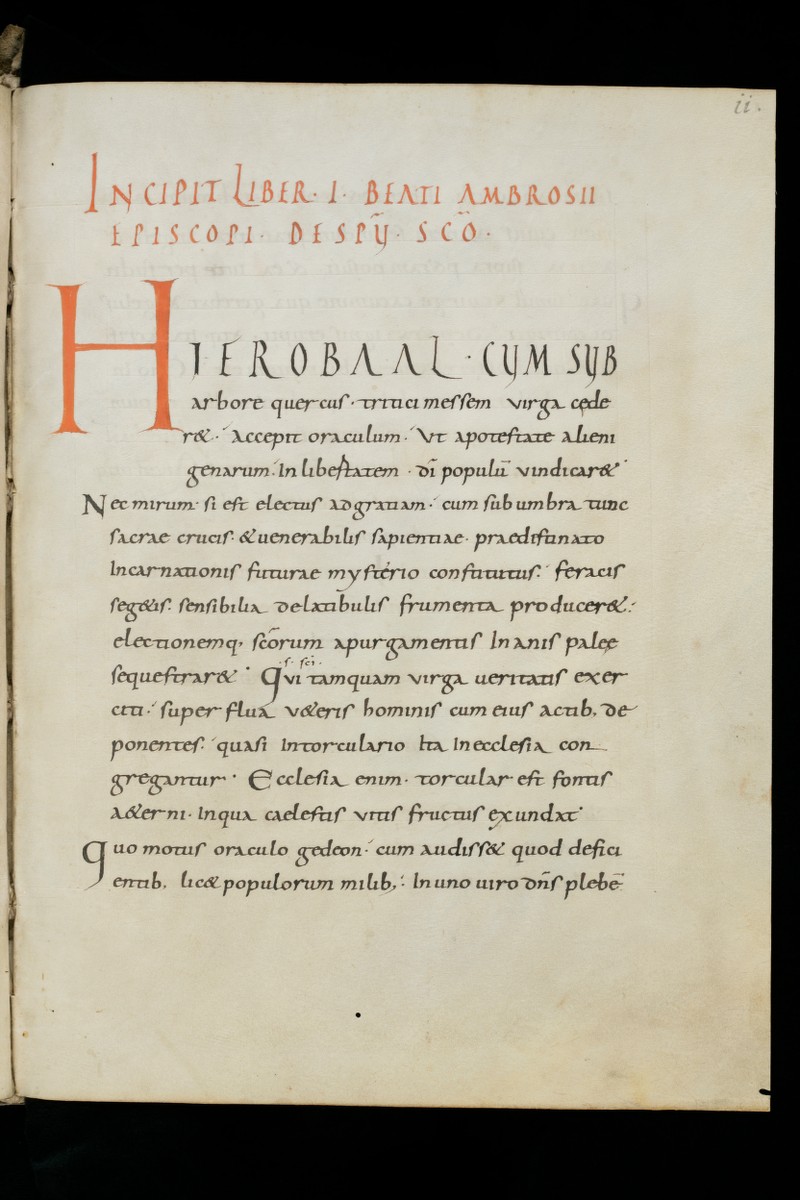 ii.
INCIPIT LIBER · I · BEATI AMBROSII
EPISCOPI · DE SPŪ · SC̄O ·
HIEROBAAL · CUM SUB
arbore quercus · tritici messem virga cęde
r& · accepit oraculum · Ut a potestate alieni
genarum · In libertatem · dī populū vindicar& ·
Nec mirum · si est electus ad gratiam · cum sub umbra tunc
sacrae crucis · & uenerabilis sapientiae · praedistinato
Incarnationis futurae mysterio constitutus · feracis
seg&is · sensibilia de latibulis frumenta producer& ·
electionemq; sc̄orum a purgamentis Inanis paleę
·s· sc̄i·
sequestrar& · Qui tamquam virga ueritatis exer
citi · superflua v&eris hominis cum eius actib; de
ponentes · quasi In torculario Ita In ecclesia con
gregantur · Ecclesia enim · torcular est fontis
a&erni · In qua caelestis vitis fructus exundat ·
Quo motus oraculo gedeon · cum audiss& quod defici
entib; lic& populorum milib; · In uno uiro dn̄s plebē